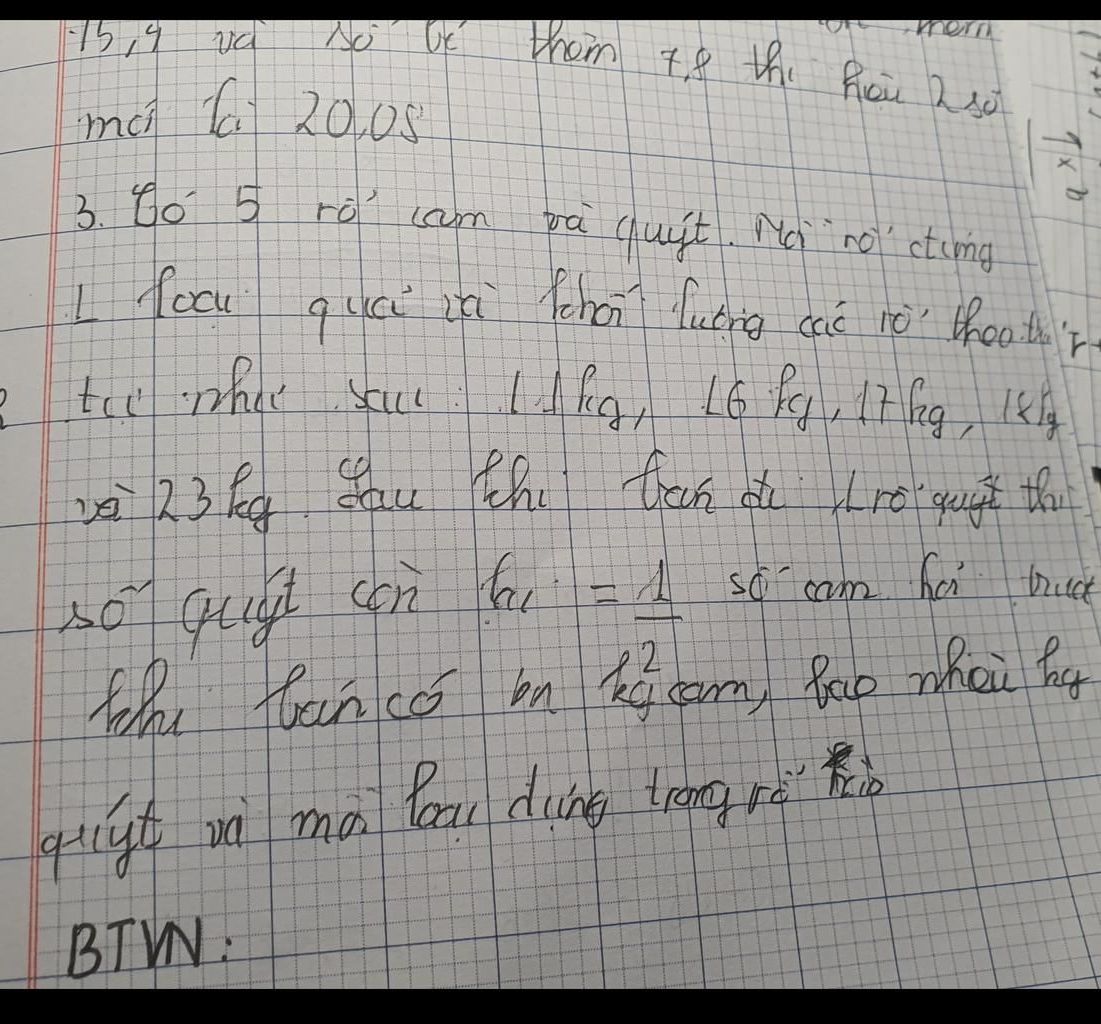 15,4 và số bé thêm 7,8 thì hiệu 2 số
mới là 20,08
3. Có 5 rổ cam và quýt. Mỗi rổ đựng
1 loại quả và khối lượng các rổ theo thứ
tự như sau: 11kg, 16 kg, 17 kg, 18kg
và 23 kg. Sau khi bán đi 1 rổ quýt thì
số quýt còn lại = 1/2 số cam hỏi trước
khi bán có bn kg cam, bao nhiêu kg
quýt và mỗi loại đựng trong rổ nào
BTVN: